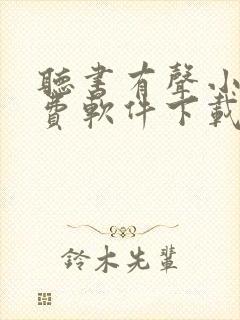 聽書有聲小
費軟件下載
鈴木先輩